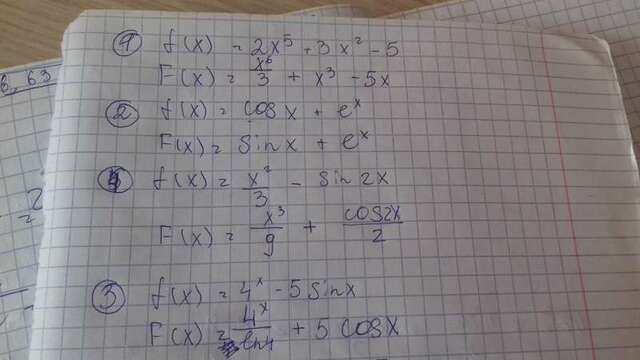 ① f(x) = 2x⁵ + 3x² - 5
F(x) = x⁶/3 + x³ - 5x
② f(x) = cos x + eˣ
F(x) = sin x + eˣ
④ f(x) = x²/3 - sin 2x
F(x) = x³/9 + cos2x/2
③ f(x) = 4ˣ - 5 sinx
F(x) = 4ˣ/ln4 + 5 cosx
6,63
2
=